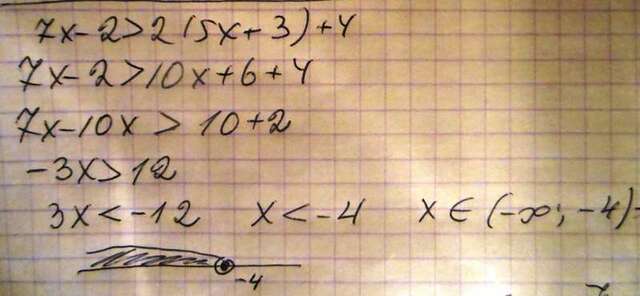 7x-2>2(5x+3)+4
7x-2>10x+6+4
7x-10x > 10+2
-3x>12
3x<-12 x<-4 x∈(-∞; -4)
-4